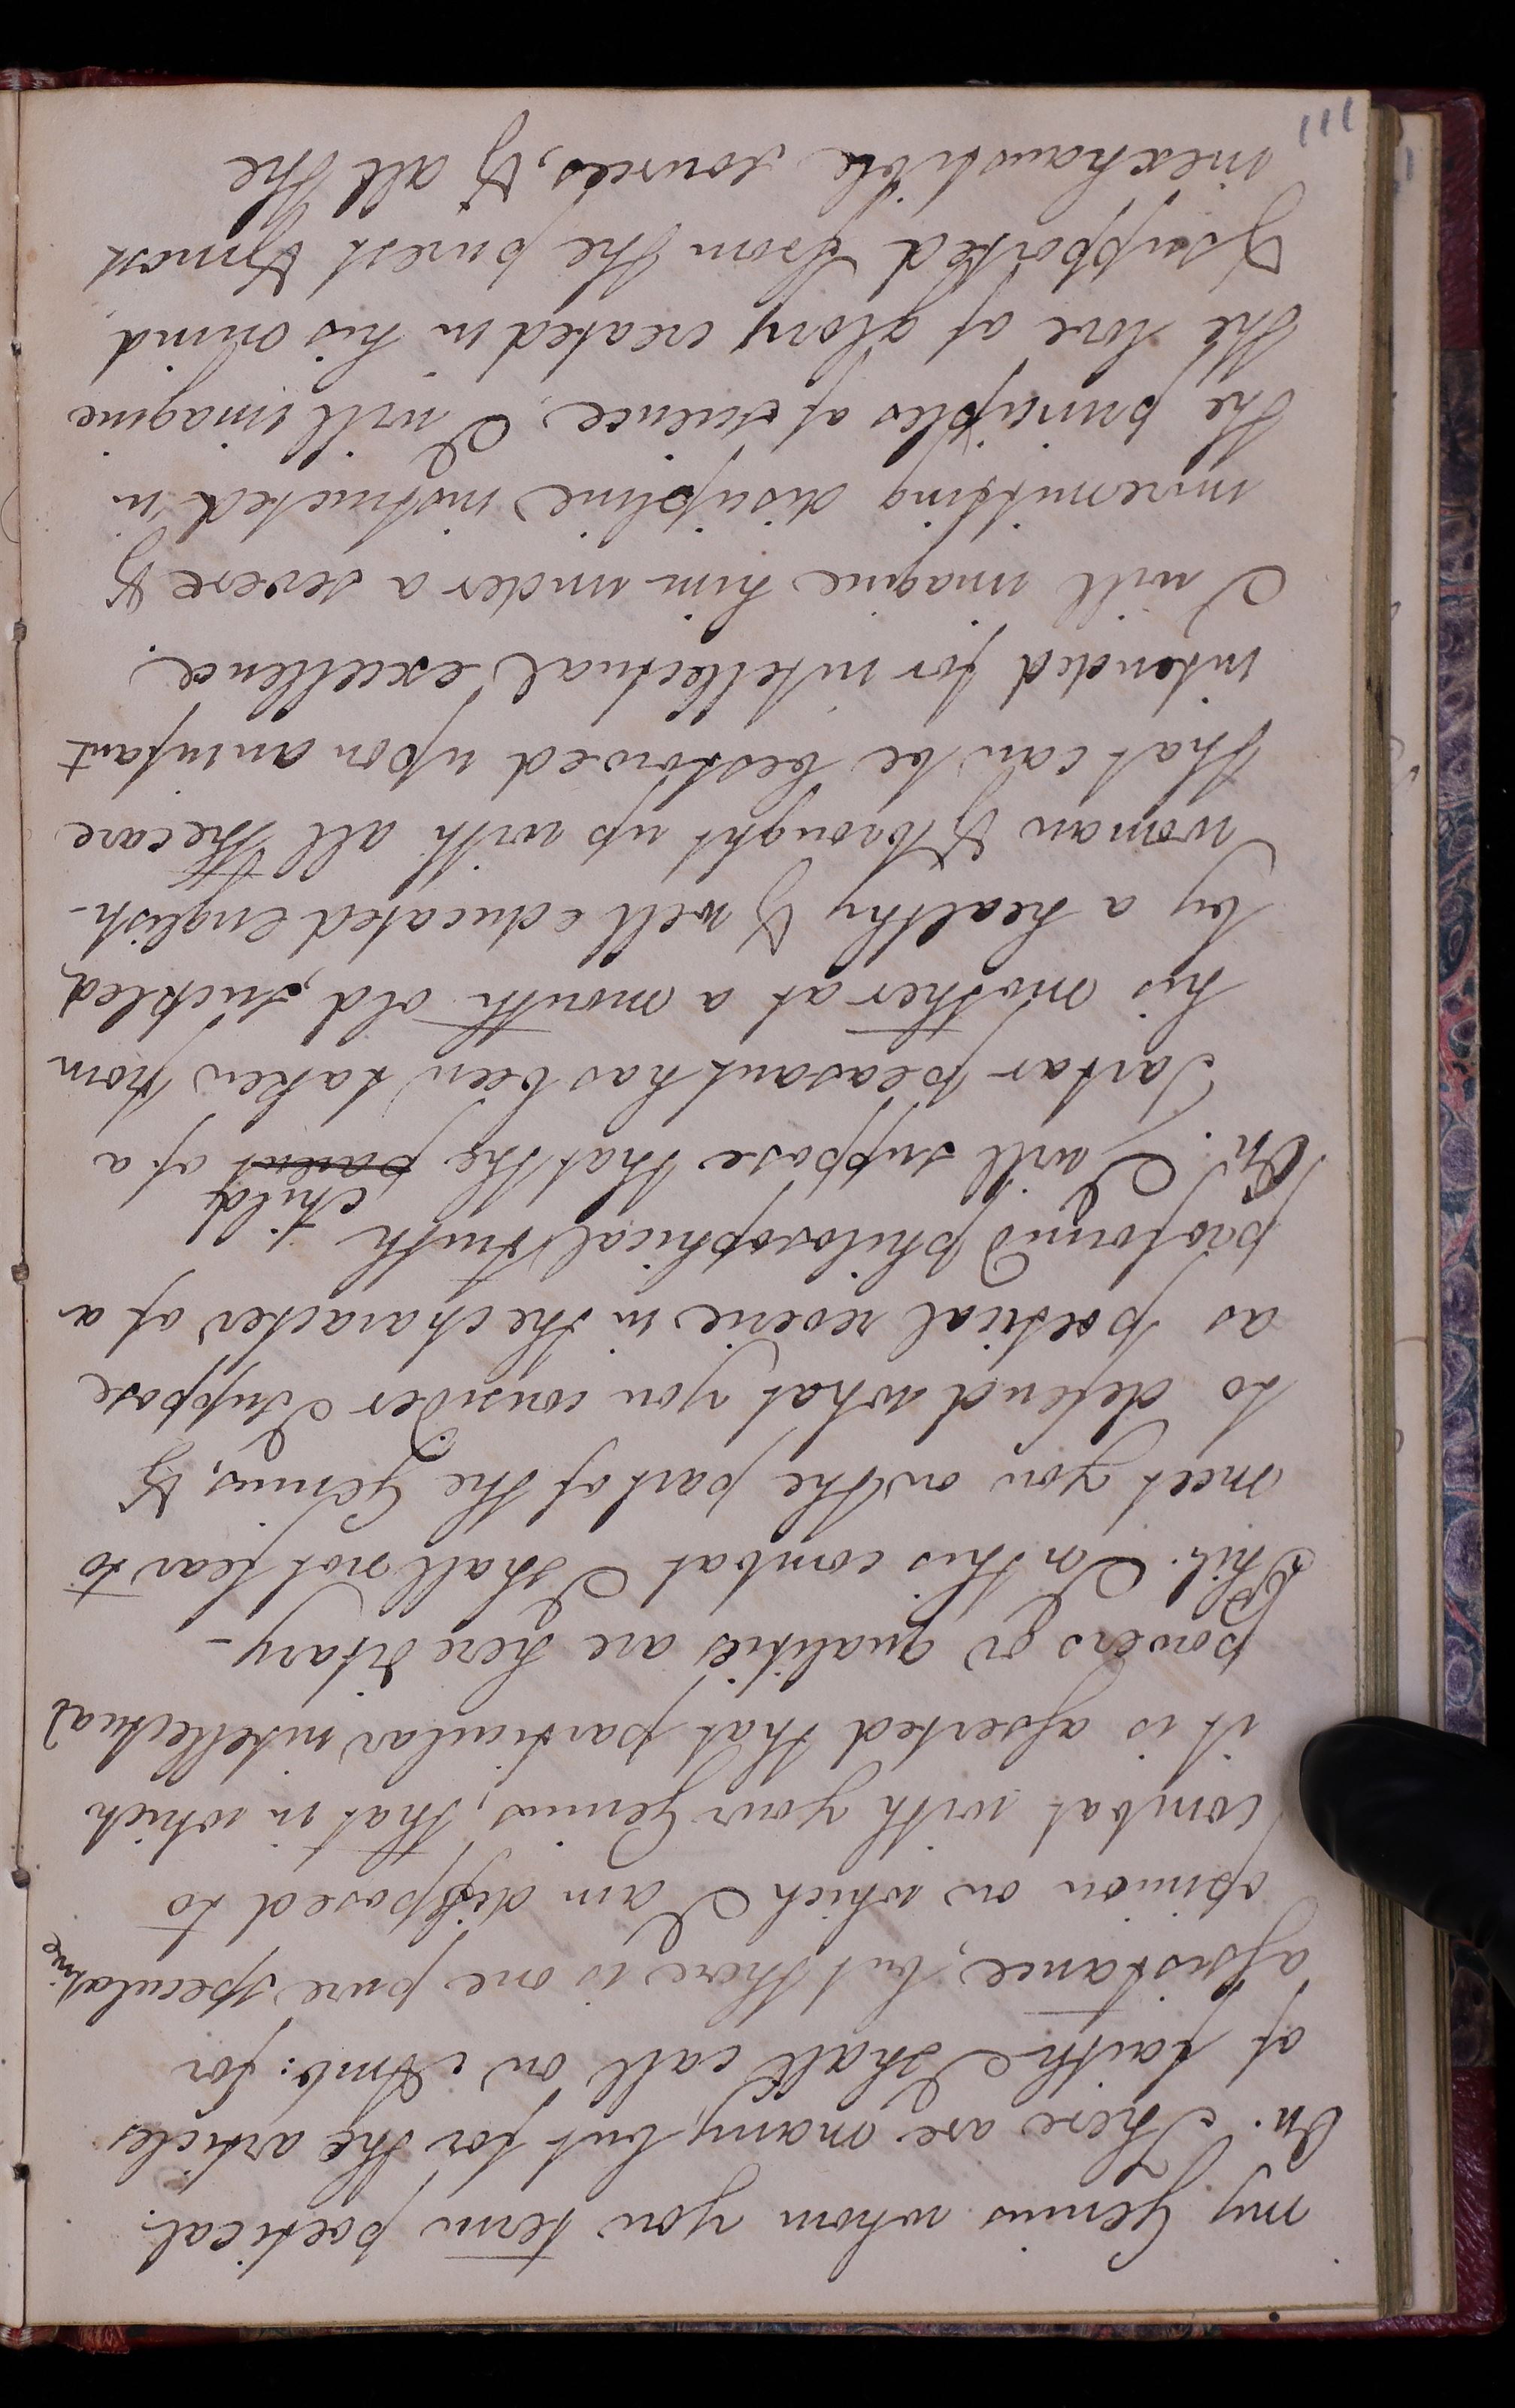 my Genius whom you term poetical.
On. There are many, but for the articles
of faith I shall call on Amb: for
assistance; but there is one pure speculative
opinion on which I am disposed to
combat with your Genius; that in which
it is asserted that particular intellectual
powers or qualities are hereditary –
Phil. In this combat I shall not fear to
meet you on the part of the Genius, &
to defend what you consider I suppose
as poetical reverie in the character of a
profound philosophical truth
child
On. I will suppose that the parent of a
Tartar peasant has been taken from
his mother at a month old, suckled
by a healthy & well educated English-
woman & brought up with all the care
that can be bestowed upon an infant
intended for intellectual excellence.
I will imagine him under a severe &
unremitting discipline instructed in
the principles of science, I will imagine
the love of glory created in his mind,
& supported from the purest & most
inexhaustible sources, & all the
111